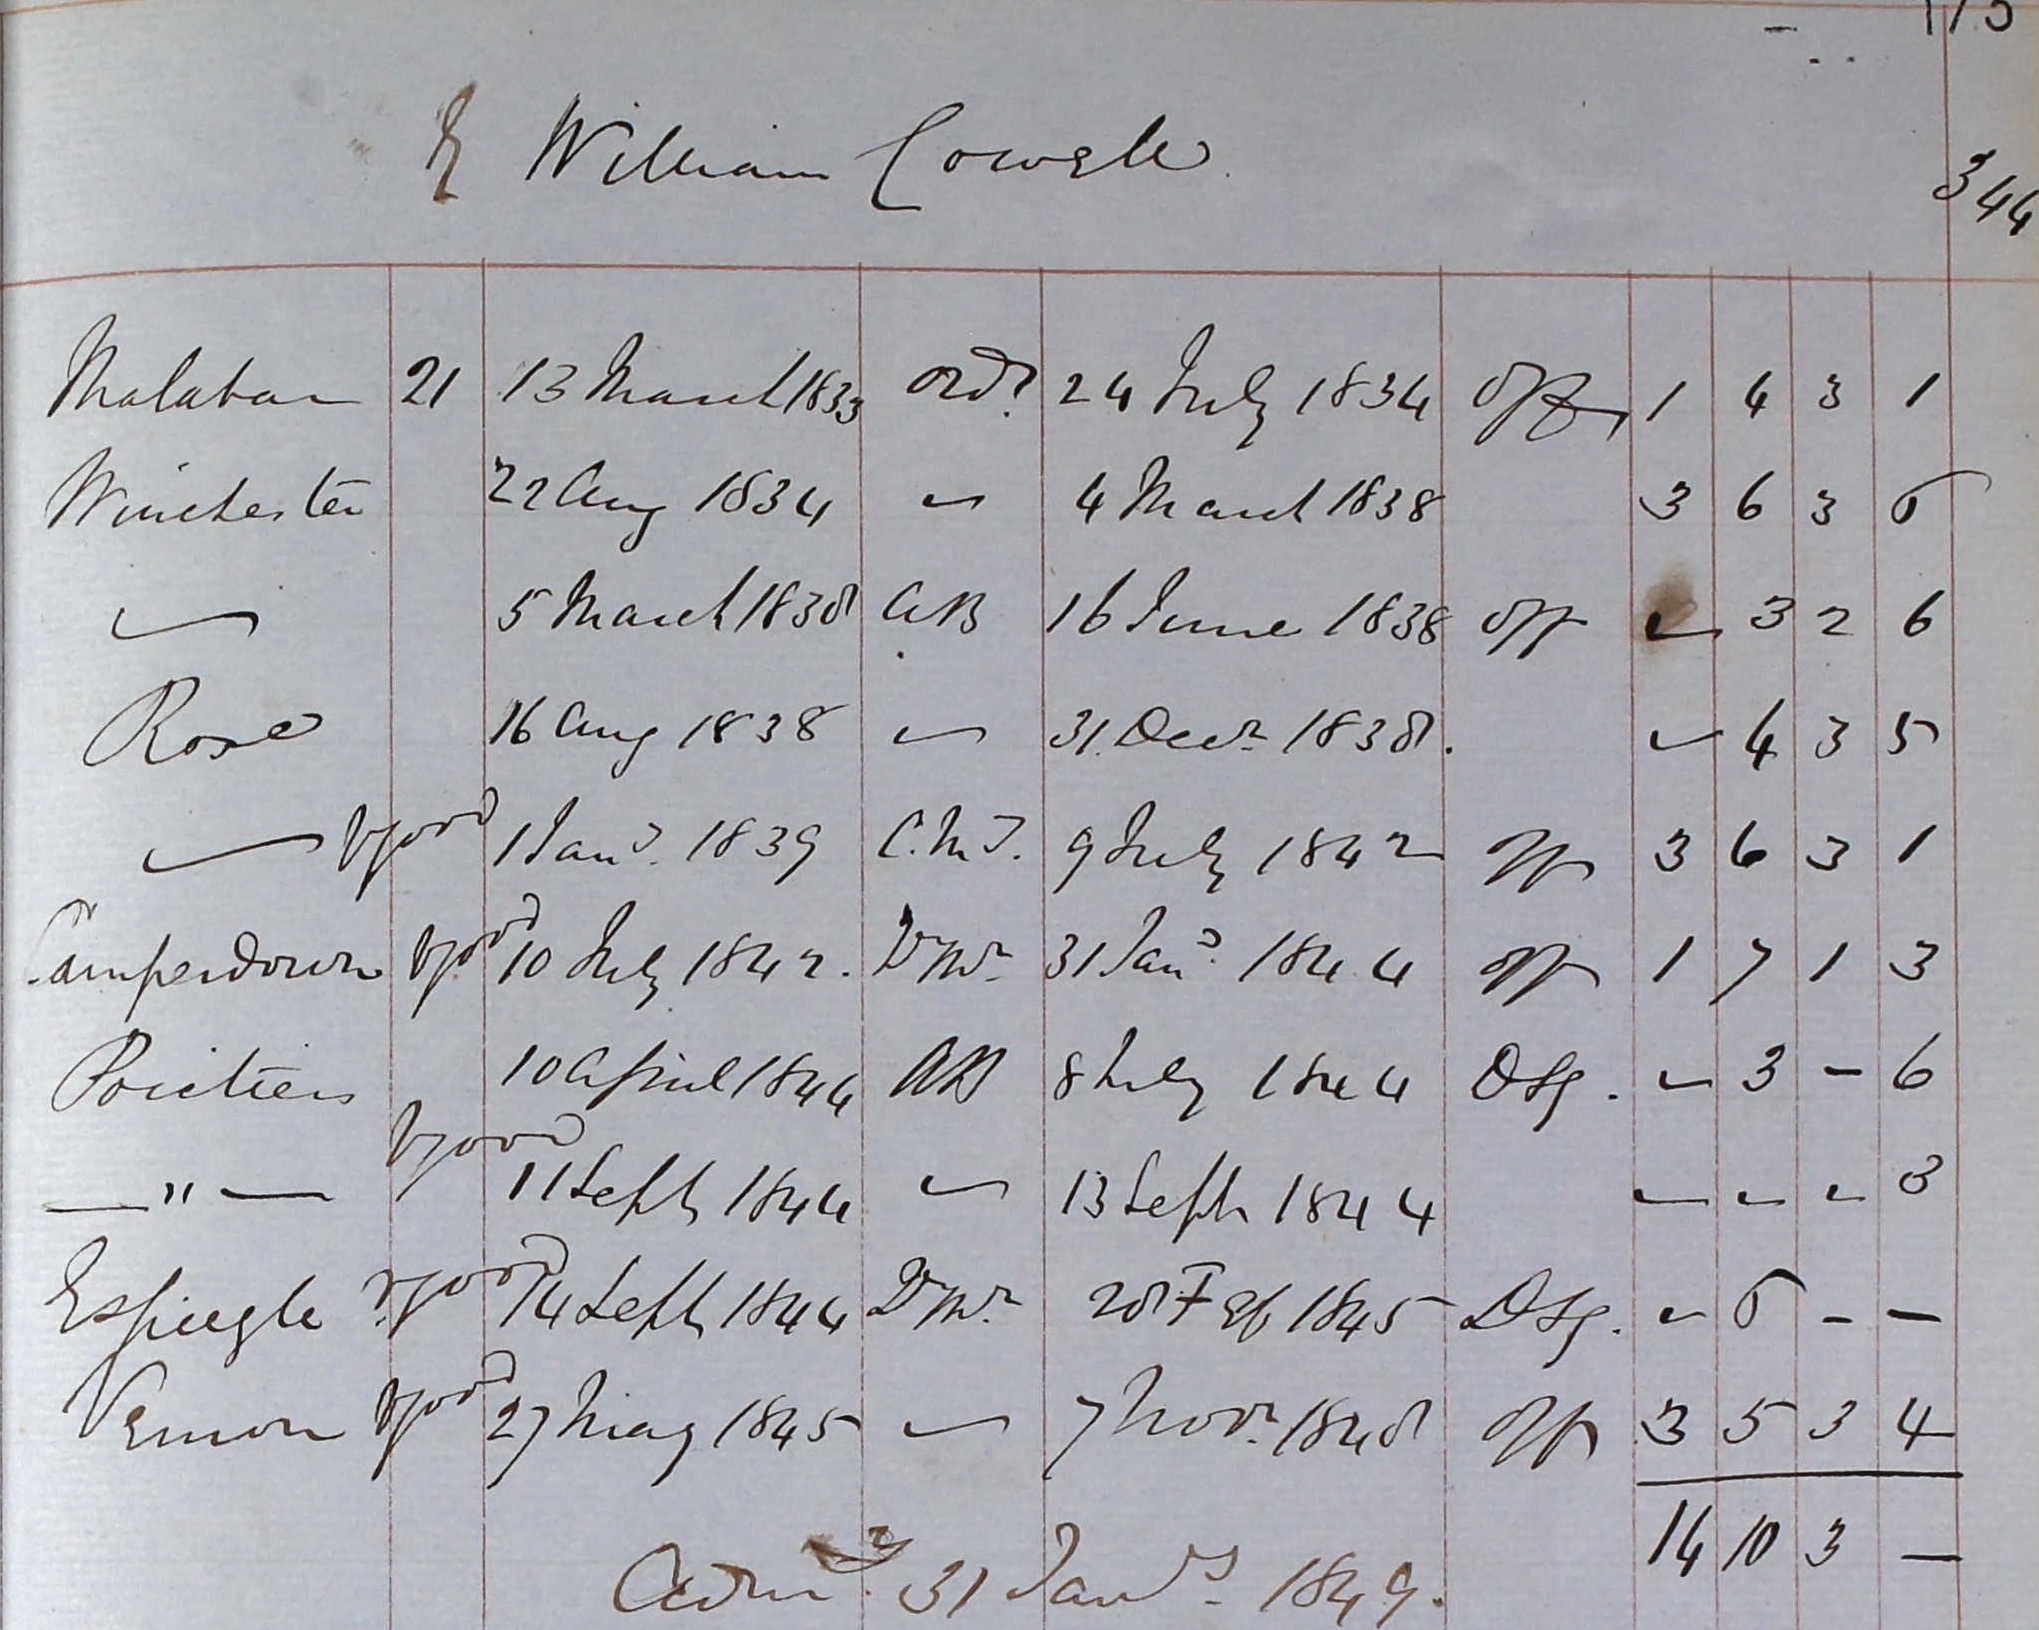 William Cowell
344
Malabar 21 13 March 1833 Ord.y 24 July 1834 Off 1 4 3 1
Winchester 22 Aug 1834 " 4 March 1838 3 6 3 5
" 5 March 1838 AB 16 June 1838 Off " 3 2 6
Rose 16 Aug 1838 " 31 Decr 1838. " 4 3 5
" V good 1 Jany. 1839 C.M.T. 9 July 1842 Off 3 6 3 1
Camperdown V good 10 July 1842. 31 Jany 1844 Off 1 7 1 3
Poictiers 10 April 1844 AB 8 July 1844 DSq. " 3 - 6
— " — V good 11 Septr 1844 " 13 Septr 1844 " " " 3
Espiegle V good 14 Septr 1844 28 Feb 1845 DSq. " 5 - -
Vernon V good 27 May 1845 " 7 Novr. 1848 Off 3 5 3 4
14 10 3 —
Adm.d 31 Jany. 1849.